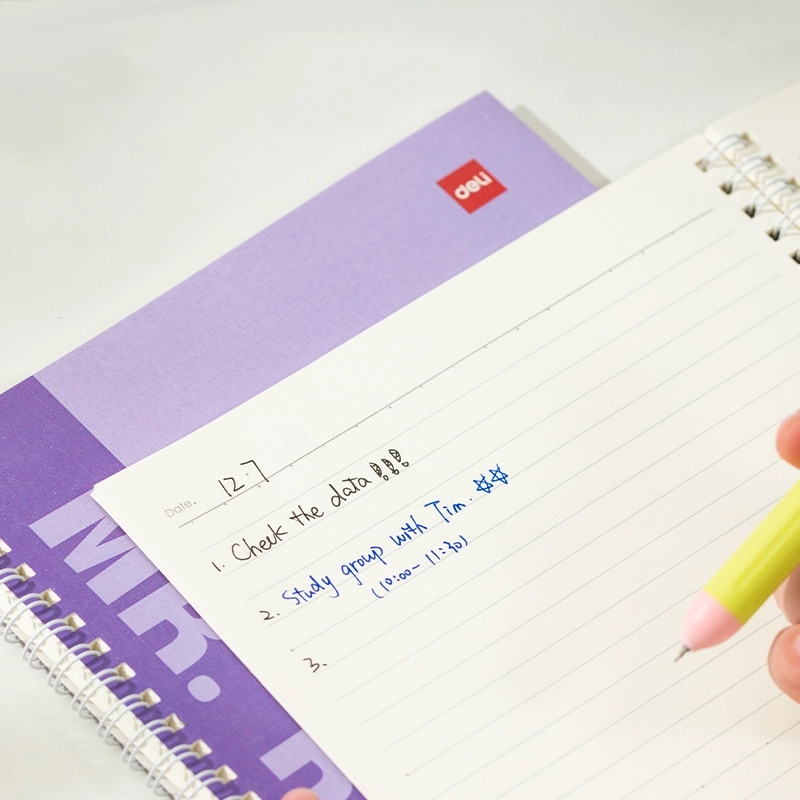 deli
Date. 12.7
1. Check the data!!!
2. Study group with Tim. ☆☆
(10:00-11:30)
3.
MR.